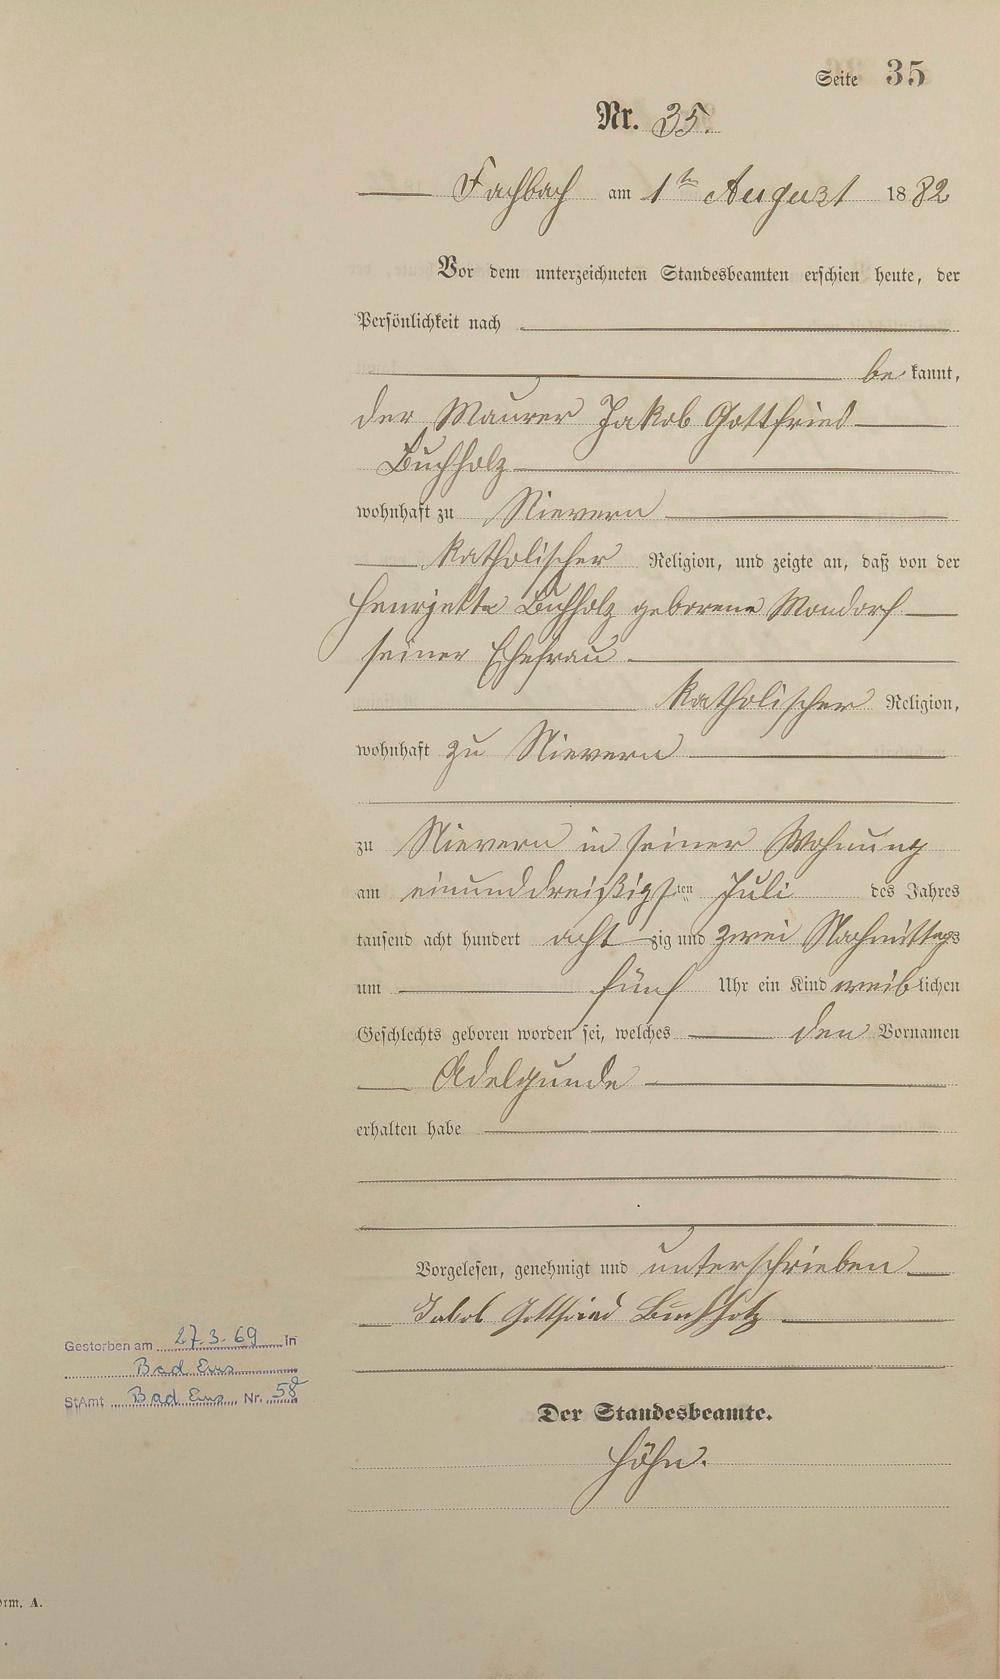 Seite 35
Nr. 35.
Fachbach am 1ten August 1882
Vor dem unterzeichneten Standesbeamten erschien heute, der
Persönlichkeit nach
be kannt,
der Maurer Jakob Gottfried
Buchholz
wohnhaft zu Nievern
katholischer Religion, und zeigte an, daß von der
Henrjette Buchholz geborene Mondorf
seiner Ehefrau
katholischer Religion,
wohnhaft zu Nievern
zu Nievern in seiner Wohnung
am einunddreißigsten Juli des Jahres
tausend acht hundert acht zig und zwei Nachmittags
um fünf Uhr ein Kind weiblichen
Geschlechts geboren worden sei, welches den Vornamen
Adelgunde
erhalten habe
Vorgelesen, genehmigt und unterschrieben
Jakob Gottfried Buchholz
Gestorben am 27.3.69 in
Bad Ems
StAmt Bad Ems Nr. 58
Der Standesbeamte.
Höhn.
orm. A.